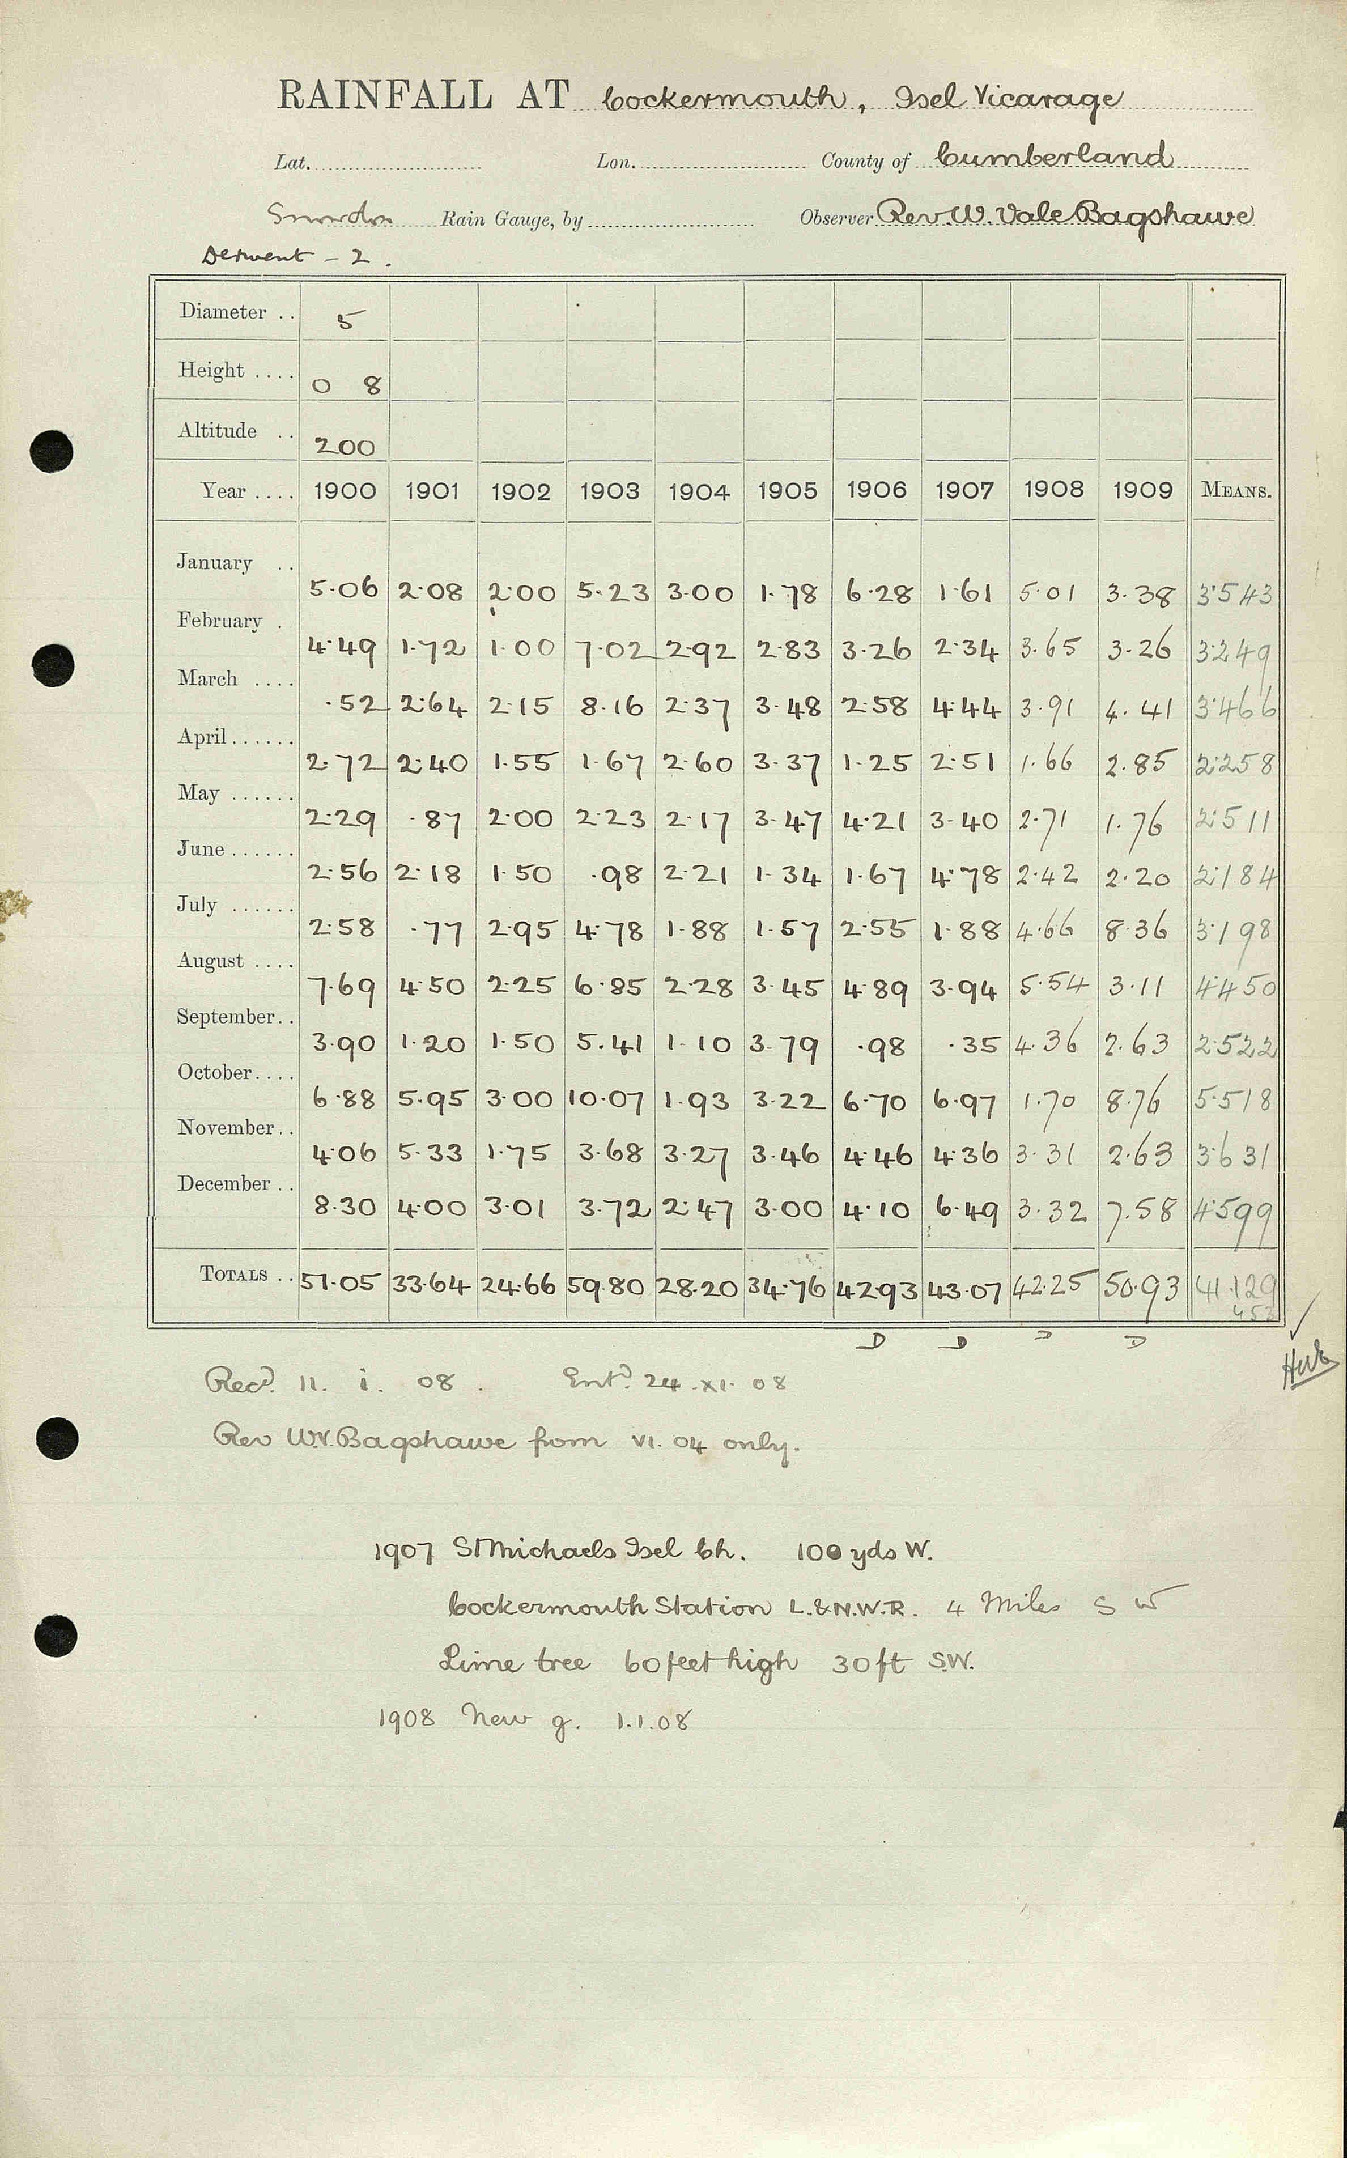 RAINFALL AT Cockermouth, Isel Vicarage
Lat. Lon. County of Cumberland
Snowdon Rain Gauge, by Observer Rev. W. Vale Bagshawe
Derwent - 2.
Diameter .. 5
Height .... 0 8
Altitude .. 200
Year .... 1900 1901 1902 1903 1904 1905 1906 1907 1908 1909 MEANS.
January .. 5.06 2.08 2.00 5.23 3.00 1.78 6.28 1.61 5.01 3.38 3.543
February . 4.49 1.72 1.00 7.02 2.92 2.83 3.26 2.34 3.65 3.26 3.249
March .... .52 2.64 2.15 8.16 2.37 3.48 2.58 4.44 3.91 4.41 3.466
April...... 2.72 2.40 1.55 1.67 2.60 3.37 1.25 2.51 1.66 2.85 2.258
May ...... 2.29 .87 2.00 2.23 2.17 3.47 4.21 3.40 2.71 1.76 2.511
June...... 2.56 2.18 1.50 .98 2.21 1.34 1.67 4.78 2.42 2.20 2.184
July ...... 2.58 .77 2.95 4.78 1.88 1.57 2.55 1.88 4.66 8.36 3.198
August .... 7.69 4.50 2.25 6.85 2.28 3.45 4.89 3.94 5.54 3.11 4.450
September.. 3.90 1.20 1.50 5.41 1.10 3.79 .98 .35 4.36 2.63 2.522
October.... 6.88 5.95 3.00 10.07 1.93 3.22 6.70 6.97 1.70 8.76 5.518
November.. 4.06 5.33 1.75 3.68 3.27 3.46 4.46 4.36 3.31 2.63 3.631
December .. 8.30 4.00 3.01 3.72 2.47 3.00 4.10 6.49 3.32 7.58 4.599
TOTALS .. 51.05 33.64 24.66 59.80 28.20 34.76 42.93 43.07 42.25 50.93 41.129
D D D D
Recd. 11. i. 08. Entd. 24.XI.08
Rev W.V. Bagshawe from VI.04 only.
1907 St Michaels Isel Ch. 100 yds W.
Cockermouth Station L.&N.W.R. 4 Miles S W
Lime tree 60 feet high 30 ft S.W.
1908 New g. 1.1.08